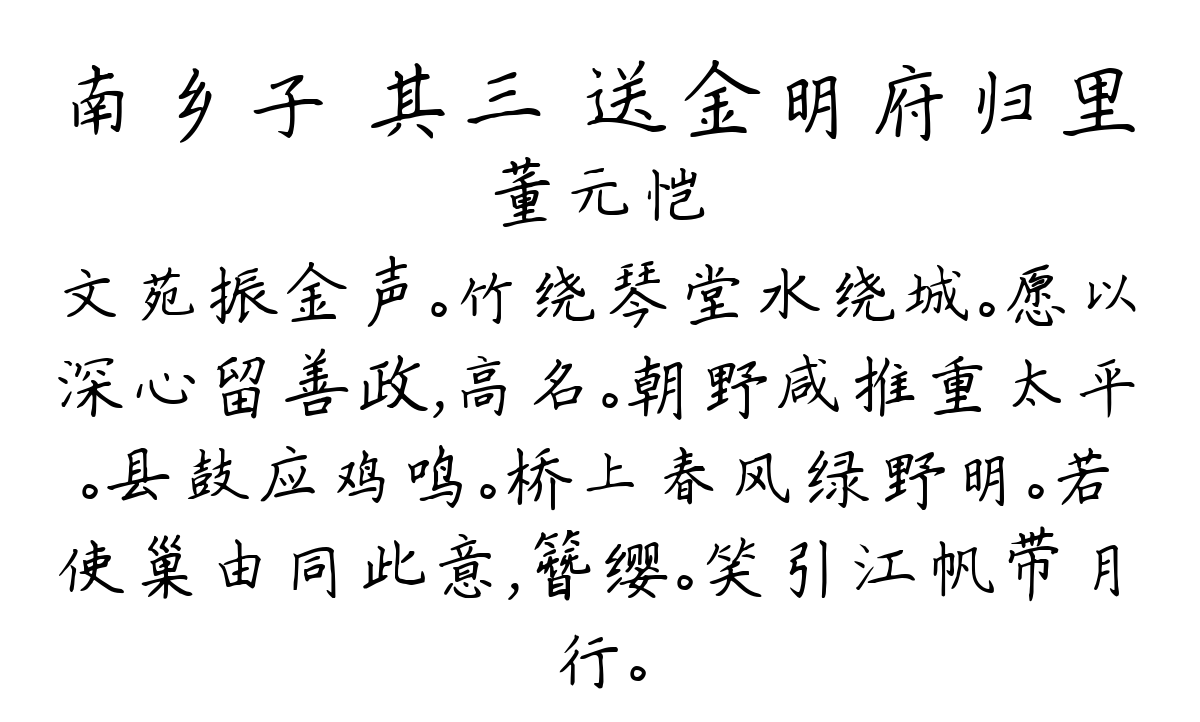 南乡子 其三 送金明府归里
董元恺
文苑振金声。竹绕琴堂水绕城。愿以
深心留善政,高名。朝野咸推重太平
。县鼓应鸡鸣。桥上春风绿野明。若
使巢由同此意,簪缨。笑引江帆带月
行。